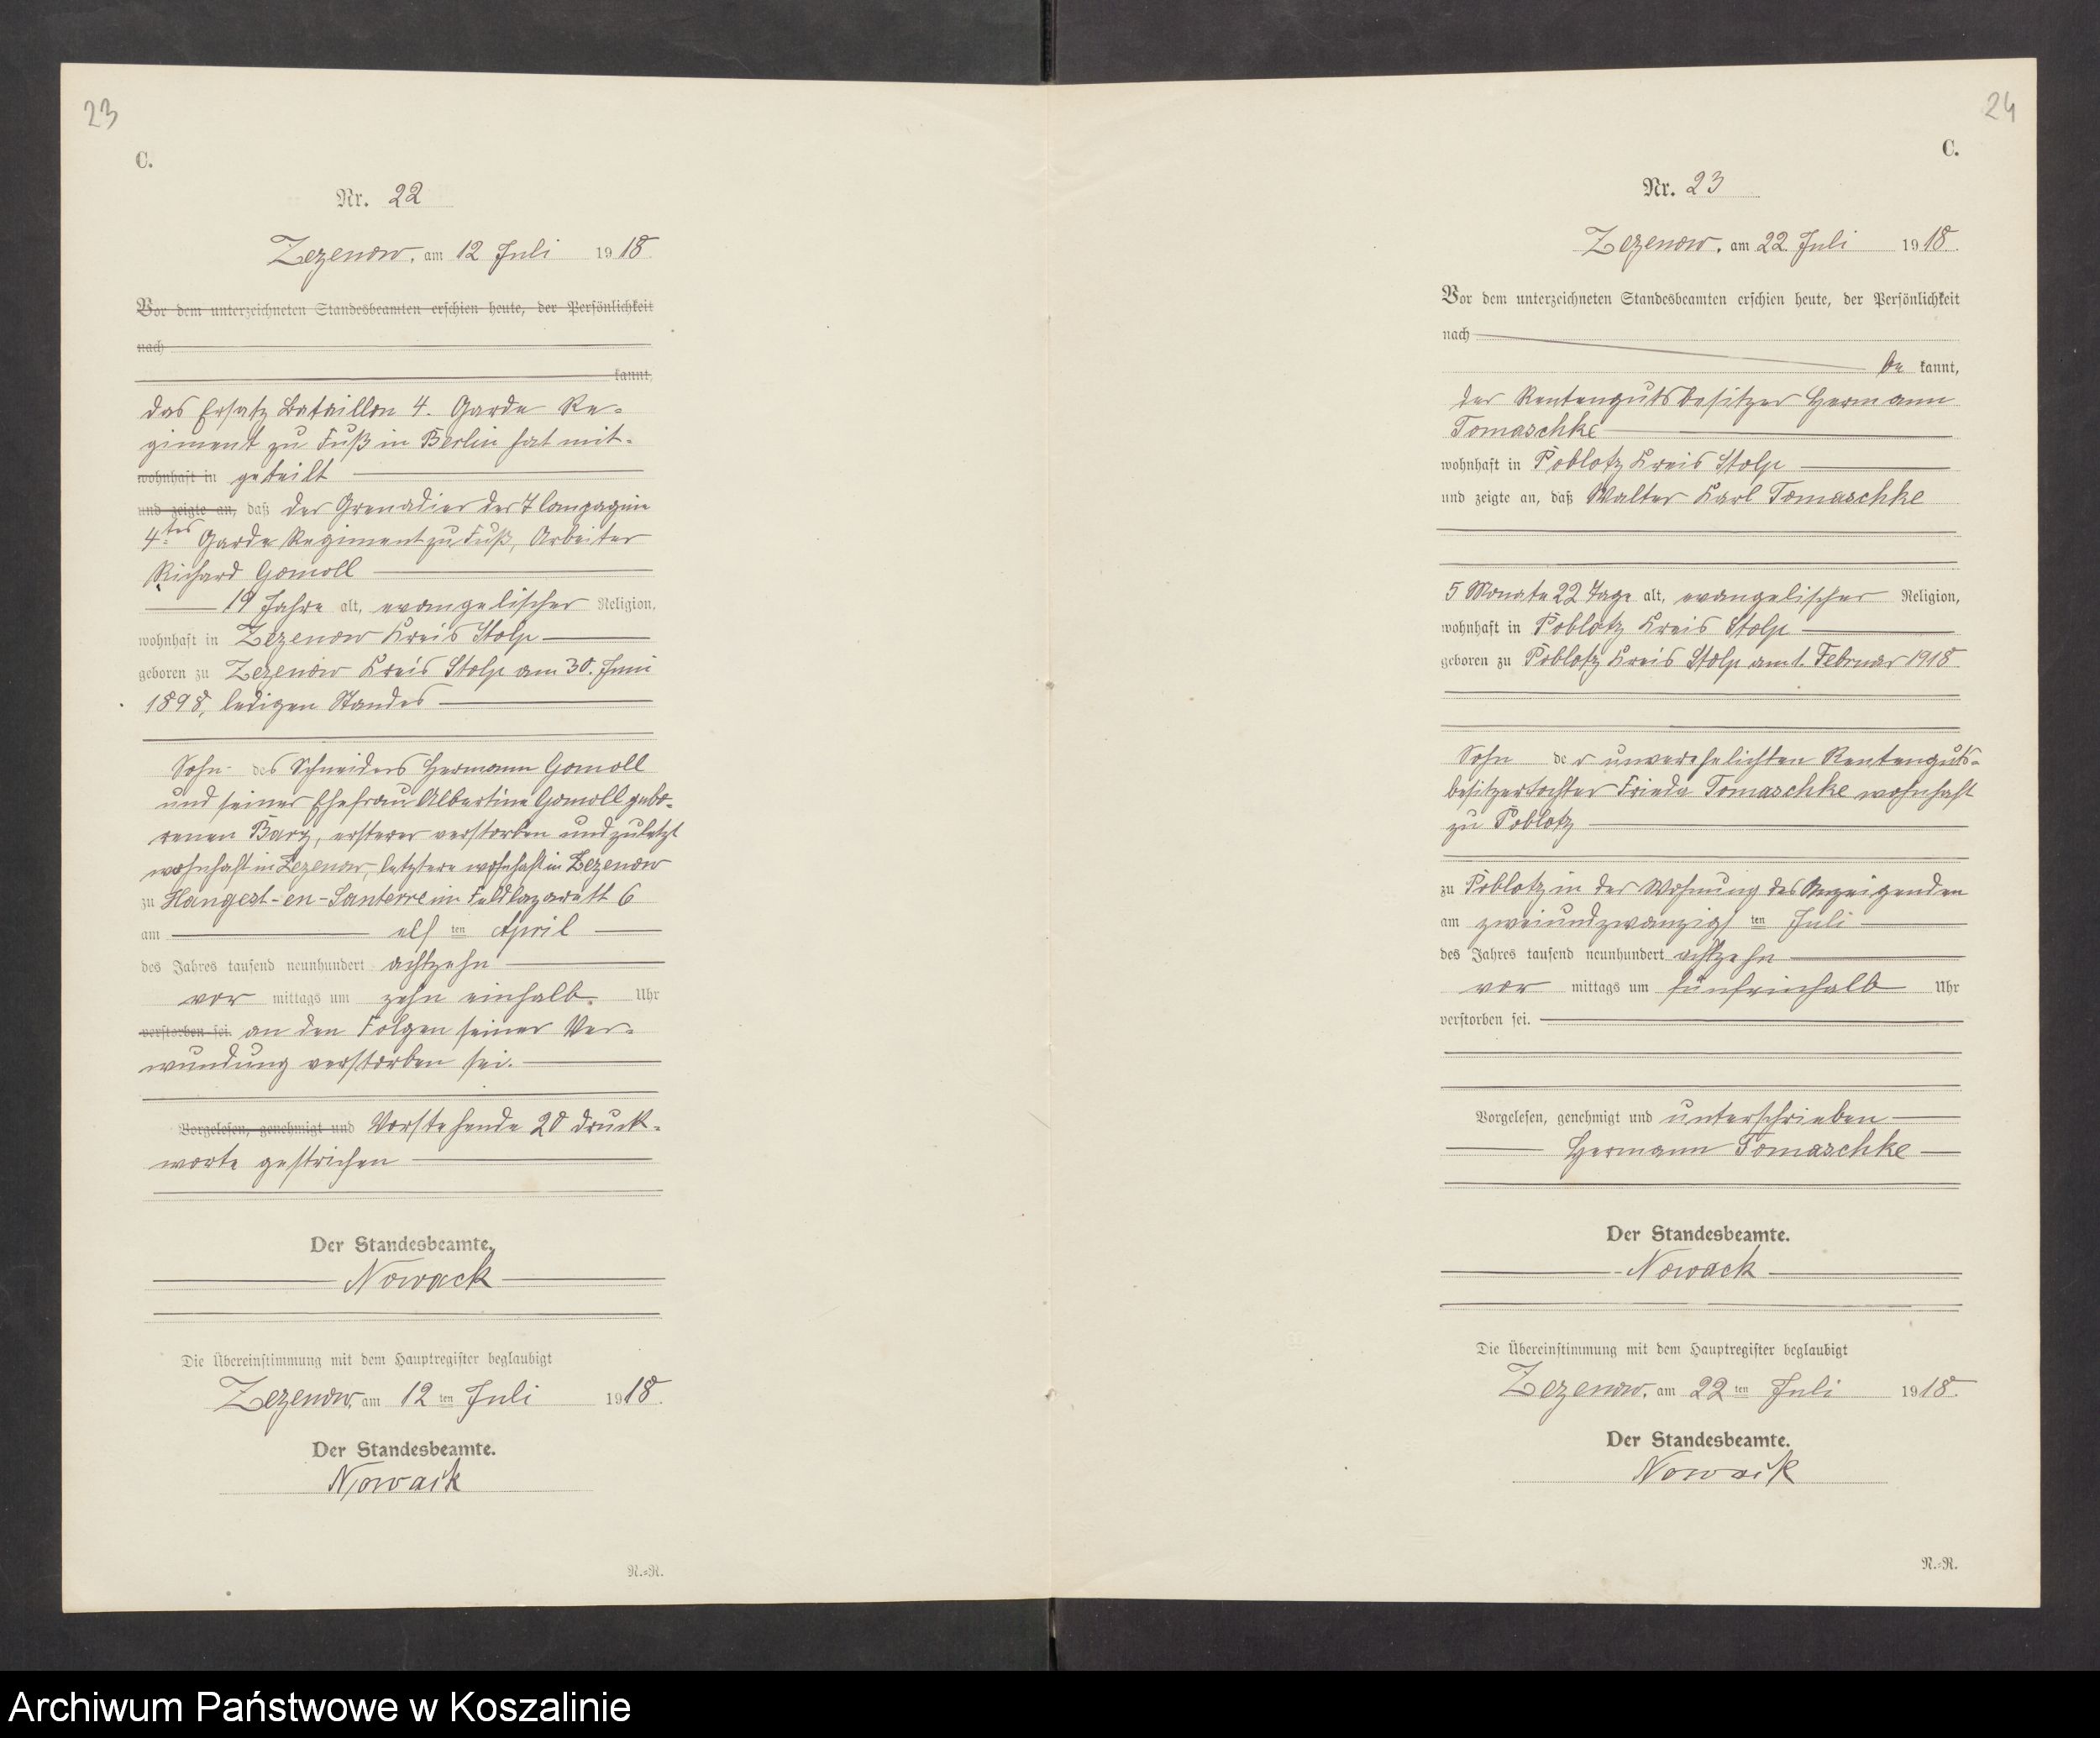 23
C.
Nr. 22
Zezenow, am 12 Juli 1918.
Vor dem unterzeichneten Standesbeamten erschien heute, der Persönlichkeit
nach
kannt,
das Ersatz Bataillon 4. Garde Re-
giment zu Fuß in Berlin hat mit-
wohnhaft in geteilt
und zeigte an, daß der Grenadier der 7 Compagnie
4tes Garde Regiment zu Fuß, Arbeiter
Richard Gomoll
19 Jahre alt, evangelischer Religion,
wohnhaft in Zezenow Kreis Stolp
geboren zu Zezenow Kreis Stolp am 30. Juni
1898, ledigen Standes
Sohn des Schneiders Hermann Gomoll
und seiner Ehefrau Albertine Gomoll gebo-
renen Barz, ersterer verstorben und zuletzt
wohnhaft in Zezenow, letztere wohnhaft in Zezenow
zu Hangest-en-Santerre im Feldlazarett 6
am elf ten April
des Jahres tausend neunhundert achtzehn
vor mittags um zehn einhalb. Uhr
verstorben sei. an den Folgen seiner Ver-
wundung verstorben sei.
Vorgelesen, genehmigt und Vorstehende 20 Druck-
worte gestrichen
Der Standesbeamte.
Nowack
Die Übereinstimmung mit dem Hauptregister beglaubigt
Zezenow, am 12 ten Juli 1918.
Der Standesbeamte.
Nowack
N.-R.
24
C.
Nr. 23
Zezenow, am 22 Juli 1918.
Vor dem unterzeichneten Standesbeamten erschien heute, der Persönlichkeit
nach
be kannt,
der Rentengutsbesitzer Hermann
Tomaschke
wohnhaft in Poblotz Kreis Stolp
und zeigte an, daß Walter Karl Tomaschke
5 Monate 22 Tage alt, evangelischer Religion,
wohnhaft in Poblotz Kreis Stolp
geboren zu Poblotz Kreis Stolp am 1. Februar 1918
Sohn der unverehelichten Rentenguts-
besitzertochter Frieda Tomaschke wohnhaft
zu Poblotz
zu Poblotz in der Wohnung des Anzeigenden
am zweiundzwanzigs ten Juli
des Jahres tausend neunhundert achtzehn
vor mittags um fünfeinhalb Uhr
verstorben sei.
Vorgelesen, genehmigt und unterschrieben
Hermann Tomaschke
Der Standesbeamte.
Nowack
Die Übereinstimmung mit dem Hauptregister beglaubigt
Zezenow, am 22 ten Juli 1918.
Der Standesbeamte.
Nowack
N.-R.
Archiwum Państwowe w Koszalinie